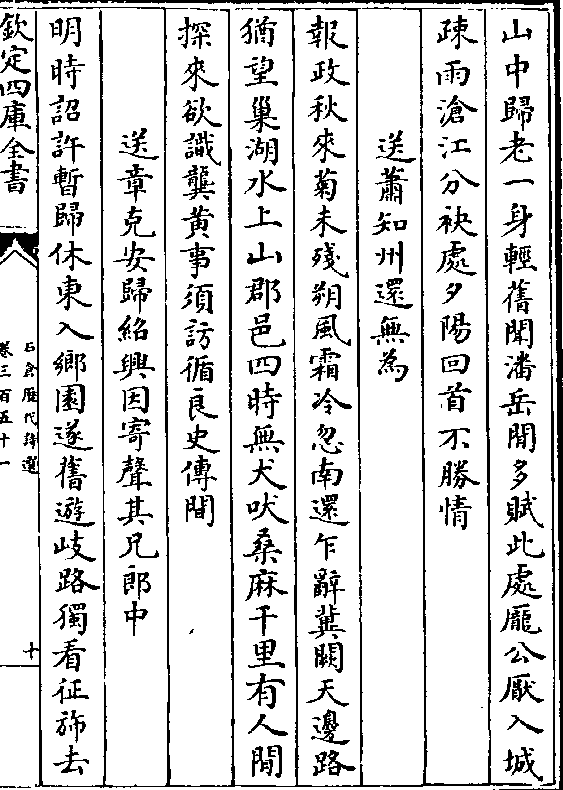 山中歸老一身輕舊聞潘岳閒多賦此處龐公厭入城
疎雨滄江分袂處夕陽回首不勝情
送蕭知州還無為
報政秋來菊未殘朔風霜冷忽南還乍辭冀闕天邊路
猶望巢湖水上山郡邑四時無犬吠桑麻千里有人閒
探來欲識龔黄事須訪循良史傳間
送章克安歸紹興因寄聲其兄郎中
明時詔許暫歸休東入鄉園遂舊遊岐路獨看征斾去
欽定四庫全書
石倉歷代詩選
卷三百五十一
十